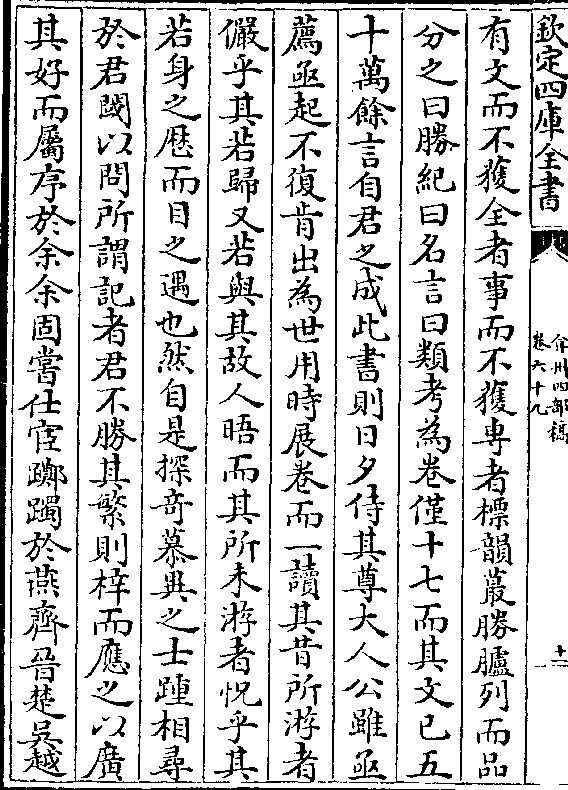 欽定四庫全書
弇州四部稿
卷六十九
十一
有文而不獲全者事而不獲專者標韻蕞勝臚列而品
分之曰勝紀曰名言曰類考為卷僅十七而其文已五
十萬餘言自君之成此書則日夕侍其尊大人公雖亟
薦亟起不復肯出為世用時展卷而一讀其昔所游者
儼乎其若歸又若與其故人晤而其所未游者怳乎其
若身之歴而目之遇也然自是探奇慕異之士踵相尋
於君國以問所謂記者君不勝其繁則梓而應之以廣
其好而屬序於余余固嘗仕宦躑躅於燕齊晉楚吳越